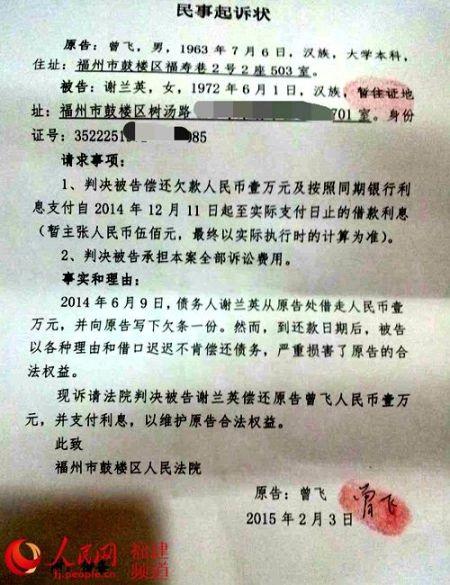 民事起诉状
原告：曾飞，男，1963年7月6日，汉族，大学本科，
住址：福州市鼓楼区福寿巷2号2座503室。
被告：谢兰英，女，1972年6月1日，汉族，暂住证地
址：福州市鼓楼区树汤路 701室。身份
证号：3522251 985
请求事项：
1、判决被告偿还欠款人民币壹万元及按照同期银行利
息支付自2014年12月11日起至实际支付日止的借款利息
（暂主张人民币伍佰元，最终以实际执行时的计算为准）。
2、判决被告承担本案全部诉讼费用。
事实和理由：
2014年6月9日，债务人谢兰英从原告处借走人民币壹
万元，并向原告写下欠条一份。然而，到还款日期后，被告
以各种理由和借口迟迟不肯偿还债务，严重损害了原告的合
法权益。
现诉请法院判决被告谢兰英偿还原告曾飞人民币壹万
元，并支付利息，以维护原告合法权益。
此致
福州市鼓楼区人民法院
原告：曾飞 曾飞
2015年2月3日
人民网 福建频道
fj.people.cn